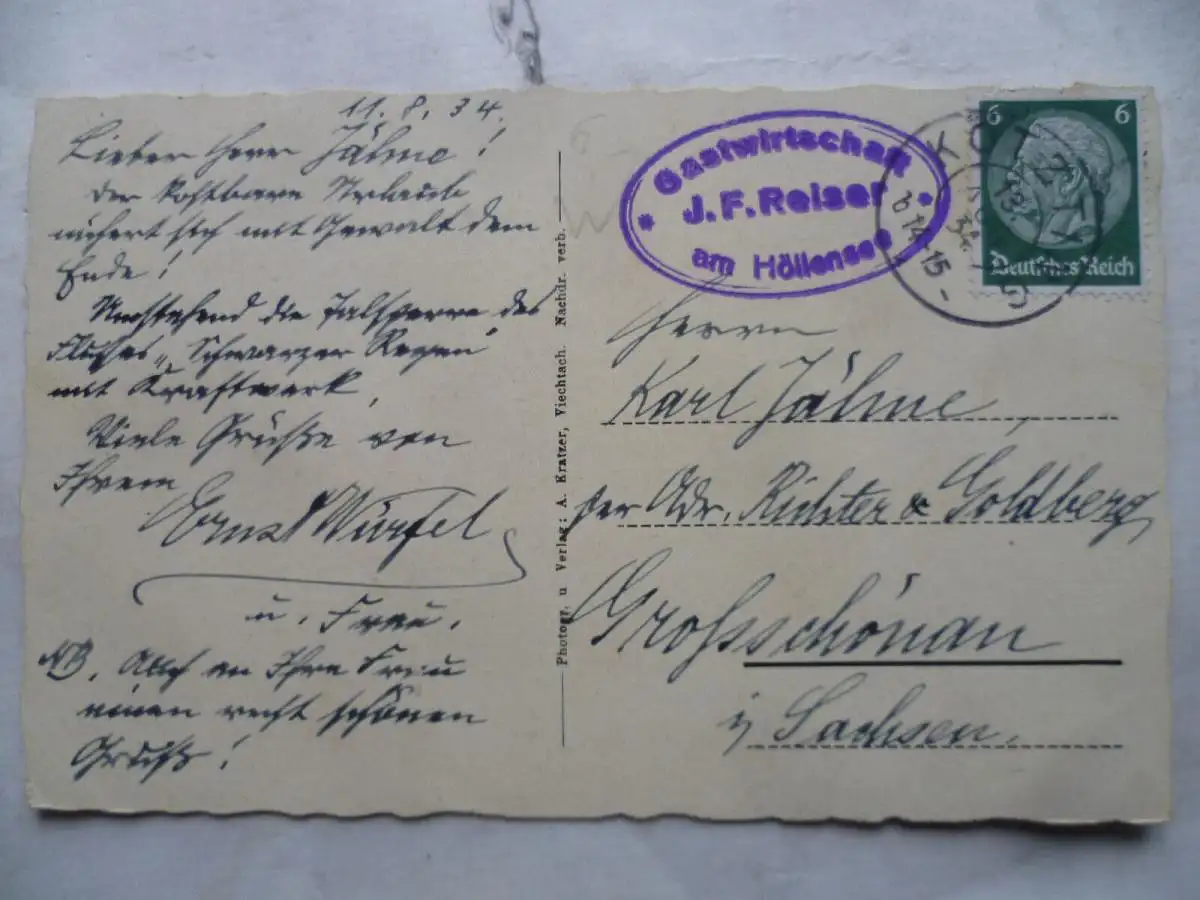 11.8.34.
Lieber Herr Jälme!
Der kostbare Urlaub
nähert sich mit Gewalt dem
Ende!
Umstehend die Talsperre des
Flußes „Schwarzer Regen"
mit Kraftwerk.
Viele Grüße von
Ihrem
Ernst Würfel
u. Frau.
NB. Auch an Ihre Frau
einen recht schönen
Gruß!
Photogr. u Verlag: A. Kratzer, Viechtach. Nachdr. verb.
* Gastwirtschaft *
J. F. Reiser
am Höllensee
KÖTZTING
14-15
6 6
Deutsches Reich
Herrn
Karl Jälme,
per Adr. Richter & Goldberg
Großschönau
i/ Sachsen.